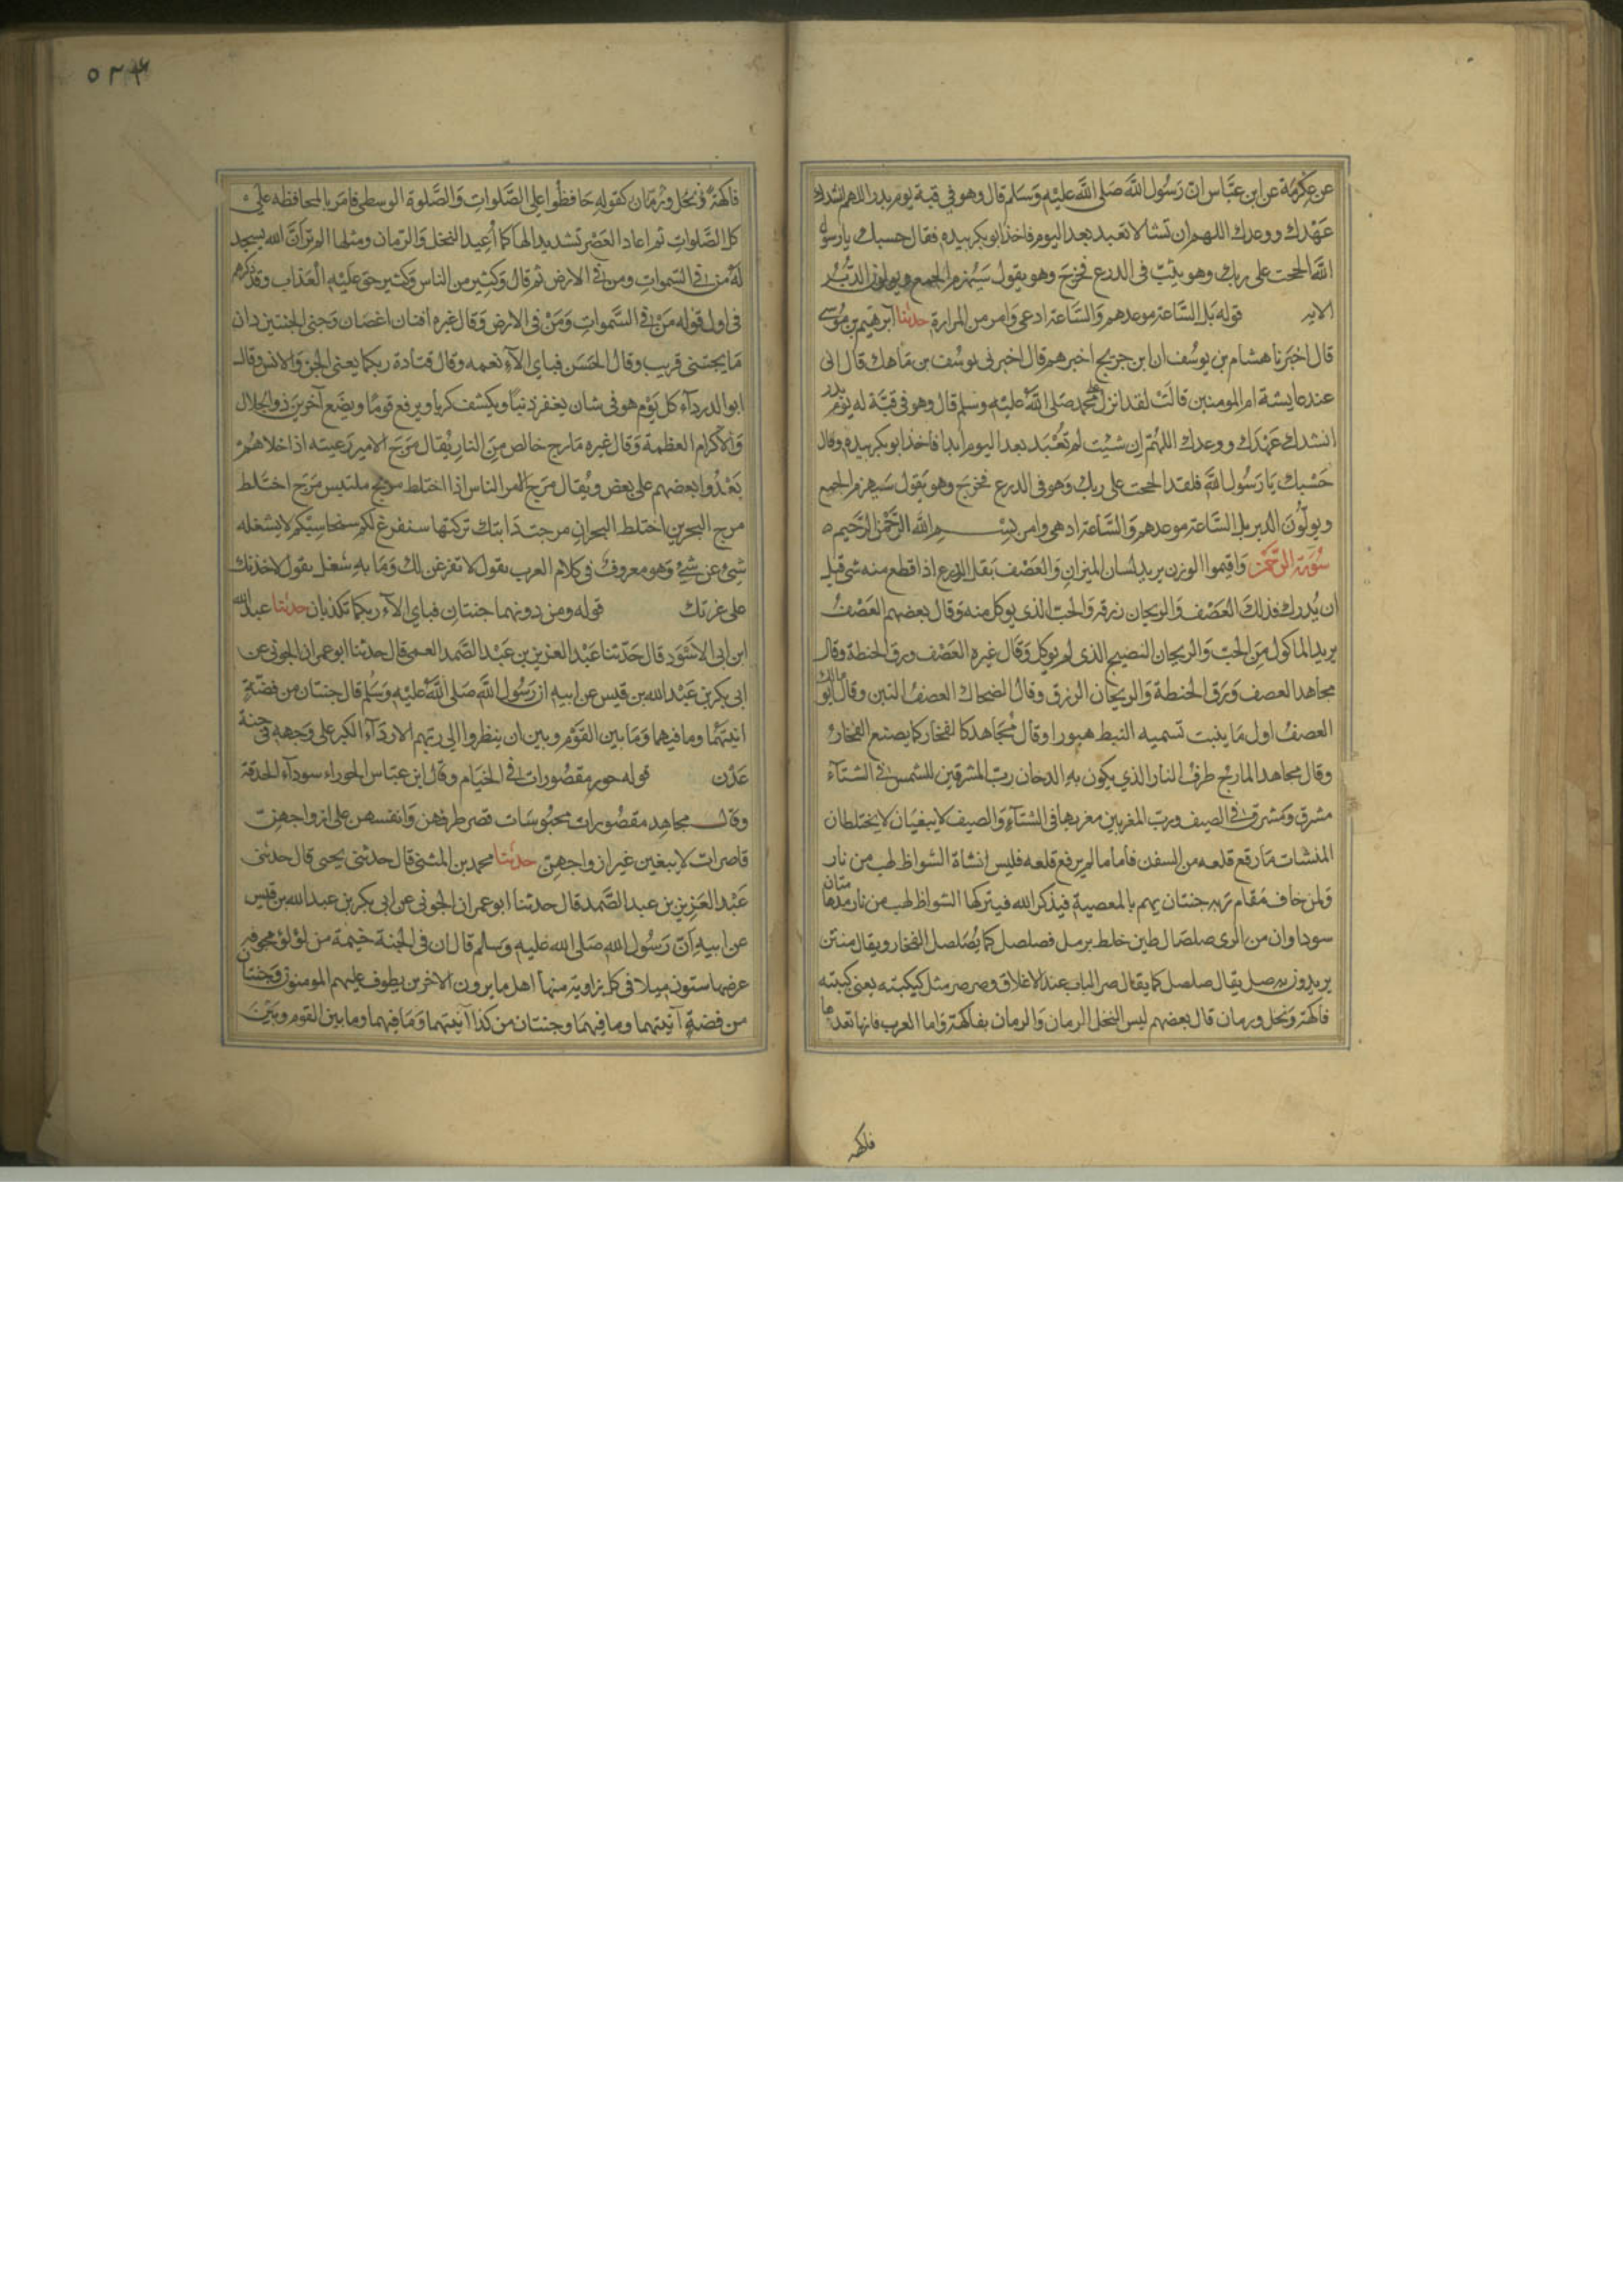 عن عكرمة عن ابن عباس ان رسول الله صلى الله عليه وسلم قال وهو في قبة يوم بدر اللهم انشدك
عهدك ووعدك اللهم ان تشا لا تعبد بعد اليوم فاخذ ابو بكر بيده فقال حسبك يا رسول
الله الححت على ربك وهو يثب في الدرع فخرج وهو يقول سيهزم الجمع ويولون الدبر
الاية قوله بل الساعة موعدهم والساعة ادهى وامر من المرارة حدثنا ابرهيم بن موسى
قال اخبرنا هشام بن يوسف ان ابن جريج اخبرهم قال اخبرني يوسف بن ماهك قال اني
عند عايشة ام المومنين قالت لقد انزل على محمد صلى الله عليه وسلم قال وهو في قبة له يوم بدر
انشدك عهدك ووعدك اللهم ان شيت لم تعبد بعد اليوم ابدا فاخذ ابو بكر بيده وقال
حسبك يا رسول الله فلقد الححت على ربك وهو في الدرع فخرج وهو يقول سيهزم الجمع
ويولون الدبر بل الساعة موعدهم والساعة ادهى وامر بسم الله الرحمن الرحيم ه
سورة الرحمن واقيموا الوزن يريد لسان الميزان والعصف بقل الزرع اذا قطع منه شي قبل
ان يدرك فذلك العصف والريحان رزقه والحب الذي يوكل منه وقال بعضهم العصف
يريد الماكول من الحب والريحان النضيج الذي لم يوكل وقال غيره العصف ورق الحنطة وقال
مجاهد العصف ورق الحنطة والريحان الرزق وقال الضحاك العصف التبن وقال ابو مالك
العصف اول ما ينبت تسميه النبط هبورا وقال مجاهد كالفخار كما يصنع الفخار
وقال مجاهد المارج طرف النار الذي يكون به الدخان رب المشرقين للشمس في الشتآء
مشرق ومشرق في الصيف ورب المغربين مغربها في الشتآء والصيف لا يبغيان لا يختلطان
المنشات ما رقع قلعه من السفن فاما ما لم يرفع قلعه فليس انشاة الشواظ لهب من نار
ولمن خاف مقام ربه جنتان يهم بالمعصية فيذكر الله فيتركها الشواظ لهب من نار مدهامتان
سوداوان من الرى صلصال طين خلط برمل فصلصل كما يصلصل الفخار ويقال منتن
يريدون به صل يقال صلصل كما يقال صر الباب عند الاغلاق وصرصر مثل كبكبته يعني كببته
فاكهة ونخل ورمان قال بعضهم ليس النخل الرمان والرمان بفاكهة واما العرب فانها تعدها
فاكهة
٥٢٣
فاكهة ونخل ورمان كقوله حافظوا على الصلوات والصلوة الوسطى فامر بالمحافظة على
كل الصلوات ثم اعاد العصر تشديدا لها كما اعيد النخل والرمان ومثلها الم تر ان الله يسجد
له من في السموات ومن في الارض ثم قال وكثير من الناس وكثير حق عليه العذاب وقد ذكرهم
في اول قوله من في السموات ومن في الارض وقال غيره افنان اغصان وجنى الجنتين دان
ما يجتنى قريب وقال الحسن فباي الآء نعمه وقال قتادة ربكما يعني الجن والانس وقال
ابو الدردآء كل يوم هو في شان يغفر ذنبا ويكشف كربا ويرفع قوما ويضع آخرين ذو الجلال
والاكرام العظمة وقال غيره مارج خالص من النار يقال مرج الامير رعيته اذا خلاهم
يعدوا بعضهم على بعض ويقال مرج امر الناس اذا اختلط مريج ملتبس مرج اختلط
مرج البحرين اختلط البحران مرجت دابتك تركتها سنفرغ لكم سنحاسبكم لا يشغله
شيء عن شيء وهو معروف في كلام العرب يقول لا تفرغن لك وما به شغل يقول لاخذنك
على غرتك قوله ومن دونهما جنتان فباي الآء ربكما تكذبان حدثنا عبد الله
ابن ابي الاسود قال حدثنا عبد العزيز بن عبد الصمد العمي قال حدثنا ابو عمران الجوني عن
ابي بكر بن عبد الله بن قيس عن ابيه ان رسول الله صلى الله عليه وسلم قال جنتان من فضة
انيتهما وما فيهما وما بين القوم وبين ان ينظروا الى ربهم الا ردآء الكبر على وجهه في جنة
عدن قوله حور مقصورات في الخيام وقال ابن عباس الحوراء سودآء الحدقة
وقال مجاهد مقصورات محبوسات قصر طرفهن وانفسهن على ازواجهن
قاصرات لا يبغين غير ازواجهن حدثنا محمد بن المثنى قال حدثني يحيى قال حدثني
عبد العزيز بن عبد الصمد قال حدثنا ابو عمران الجوني عن ابي بكر بن عبد الله بن قيس
عن ابيه ان رسول الله صلى الله عليه وسلم قال ان في الجنة خيمة من لؤلؤ مجوفة
عرضها ستون ميلا في كل زاوية منها اهل ما يرون الاخرين يطوف عليهم المومنون وجنتان
من فضة آنيتهما وما فيهما وجنتان من كذا آنيتهما وما فيهما وما بين القوم وبين